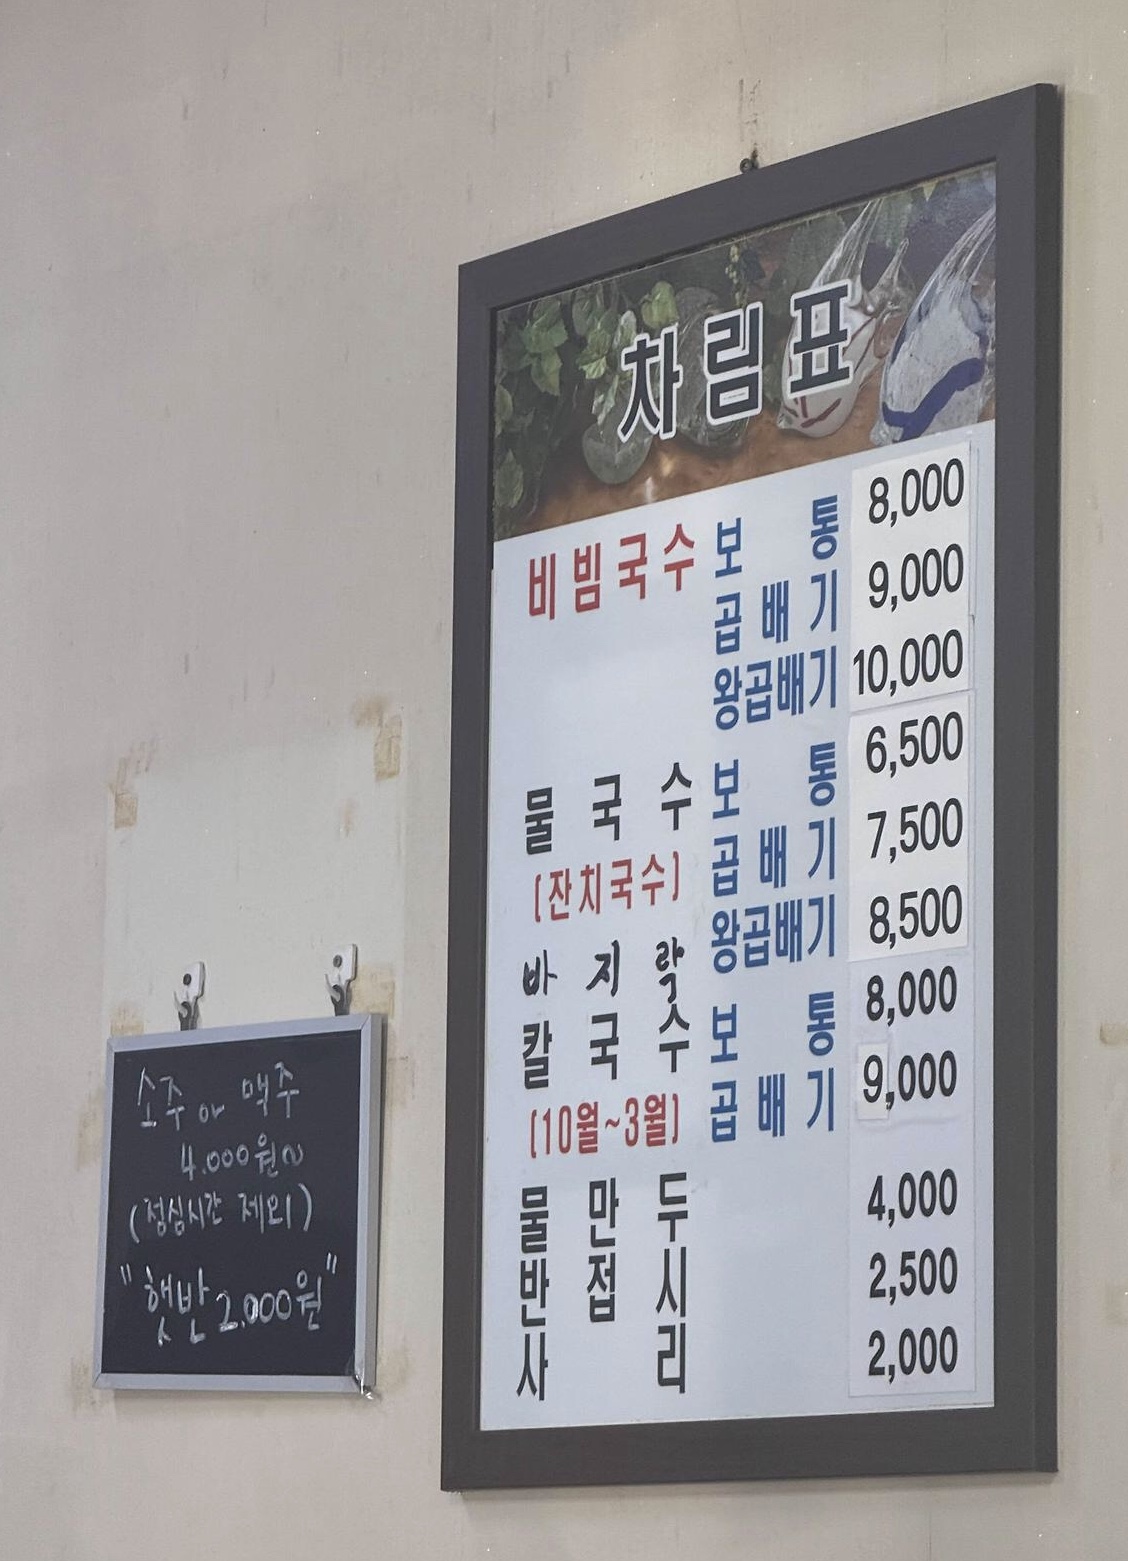 차림표
비빔국수 보통 8,000
곱배기 9,000
왕곱배기 10,000
물국수 보통 6,500
(잔치국수) 곱배기 7,500
왕곱배기 8,500
바지락
칼국수 보통 8,000
(10월~3월) 곱배기 9,000
물만두 4,000
반접시 2,500
사리 2,000
소주 or 맥주
4.000원~
(점심시간 제외)
"햇반 2.000원"